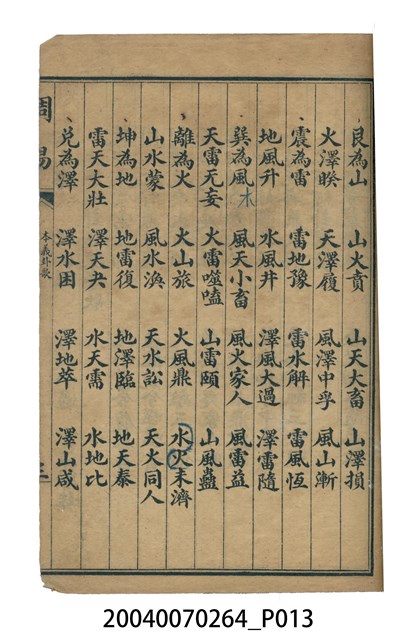 艮為山 山火賁 山天大畜 山澤損
火澤睽 天澤履 風澤中孚 風山漸
震為雷 雷地豫 雷水解 雷風恆
地風升 水風井 澤風大過 澤雷隨
巽為風 木 風天小畜 風火家人 風雷益
天雷无妄 火雷噬嗑 山雷頤 山風蠱
離為火 火山旅 火風鼎 水火未濟
山水蒙 風水渙 天水訟 天火同人
坤為地 地雷復 地澤臨 地天泰
雷天大壯 澤天夬 水天需 水地比
兌為澤 澤水困 澤地萃 澤山咸
周易 本義卦歌
20040070264_P013